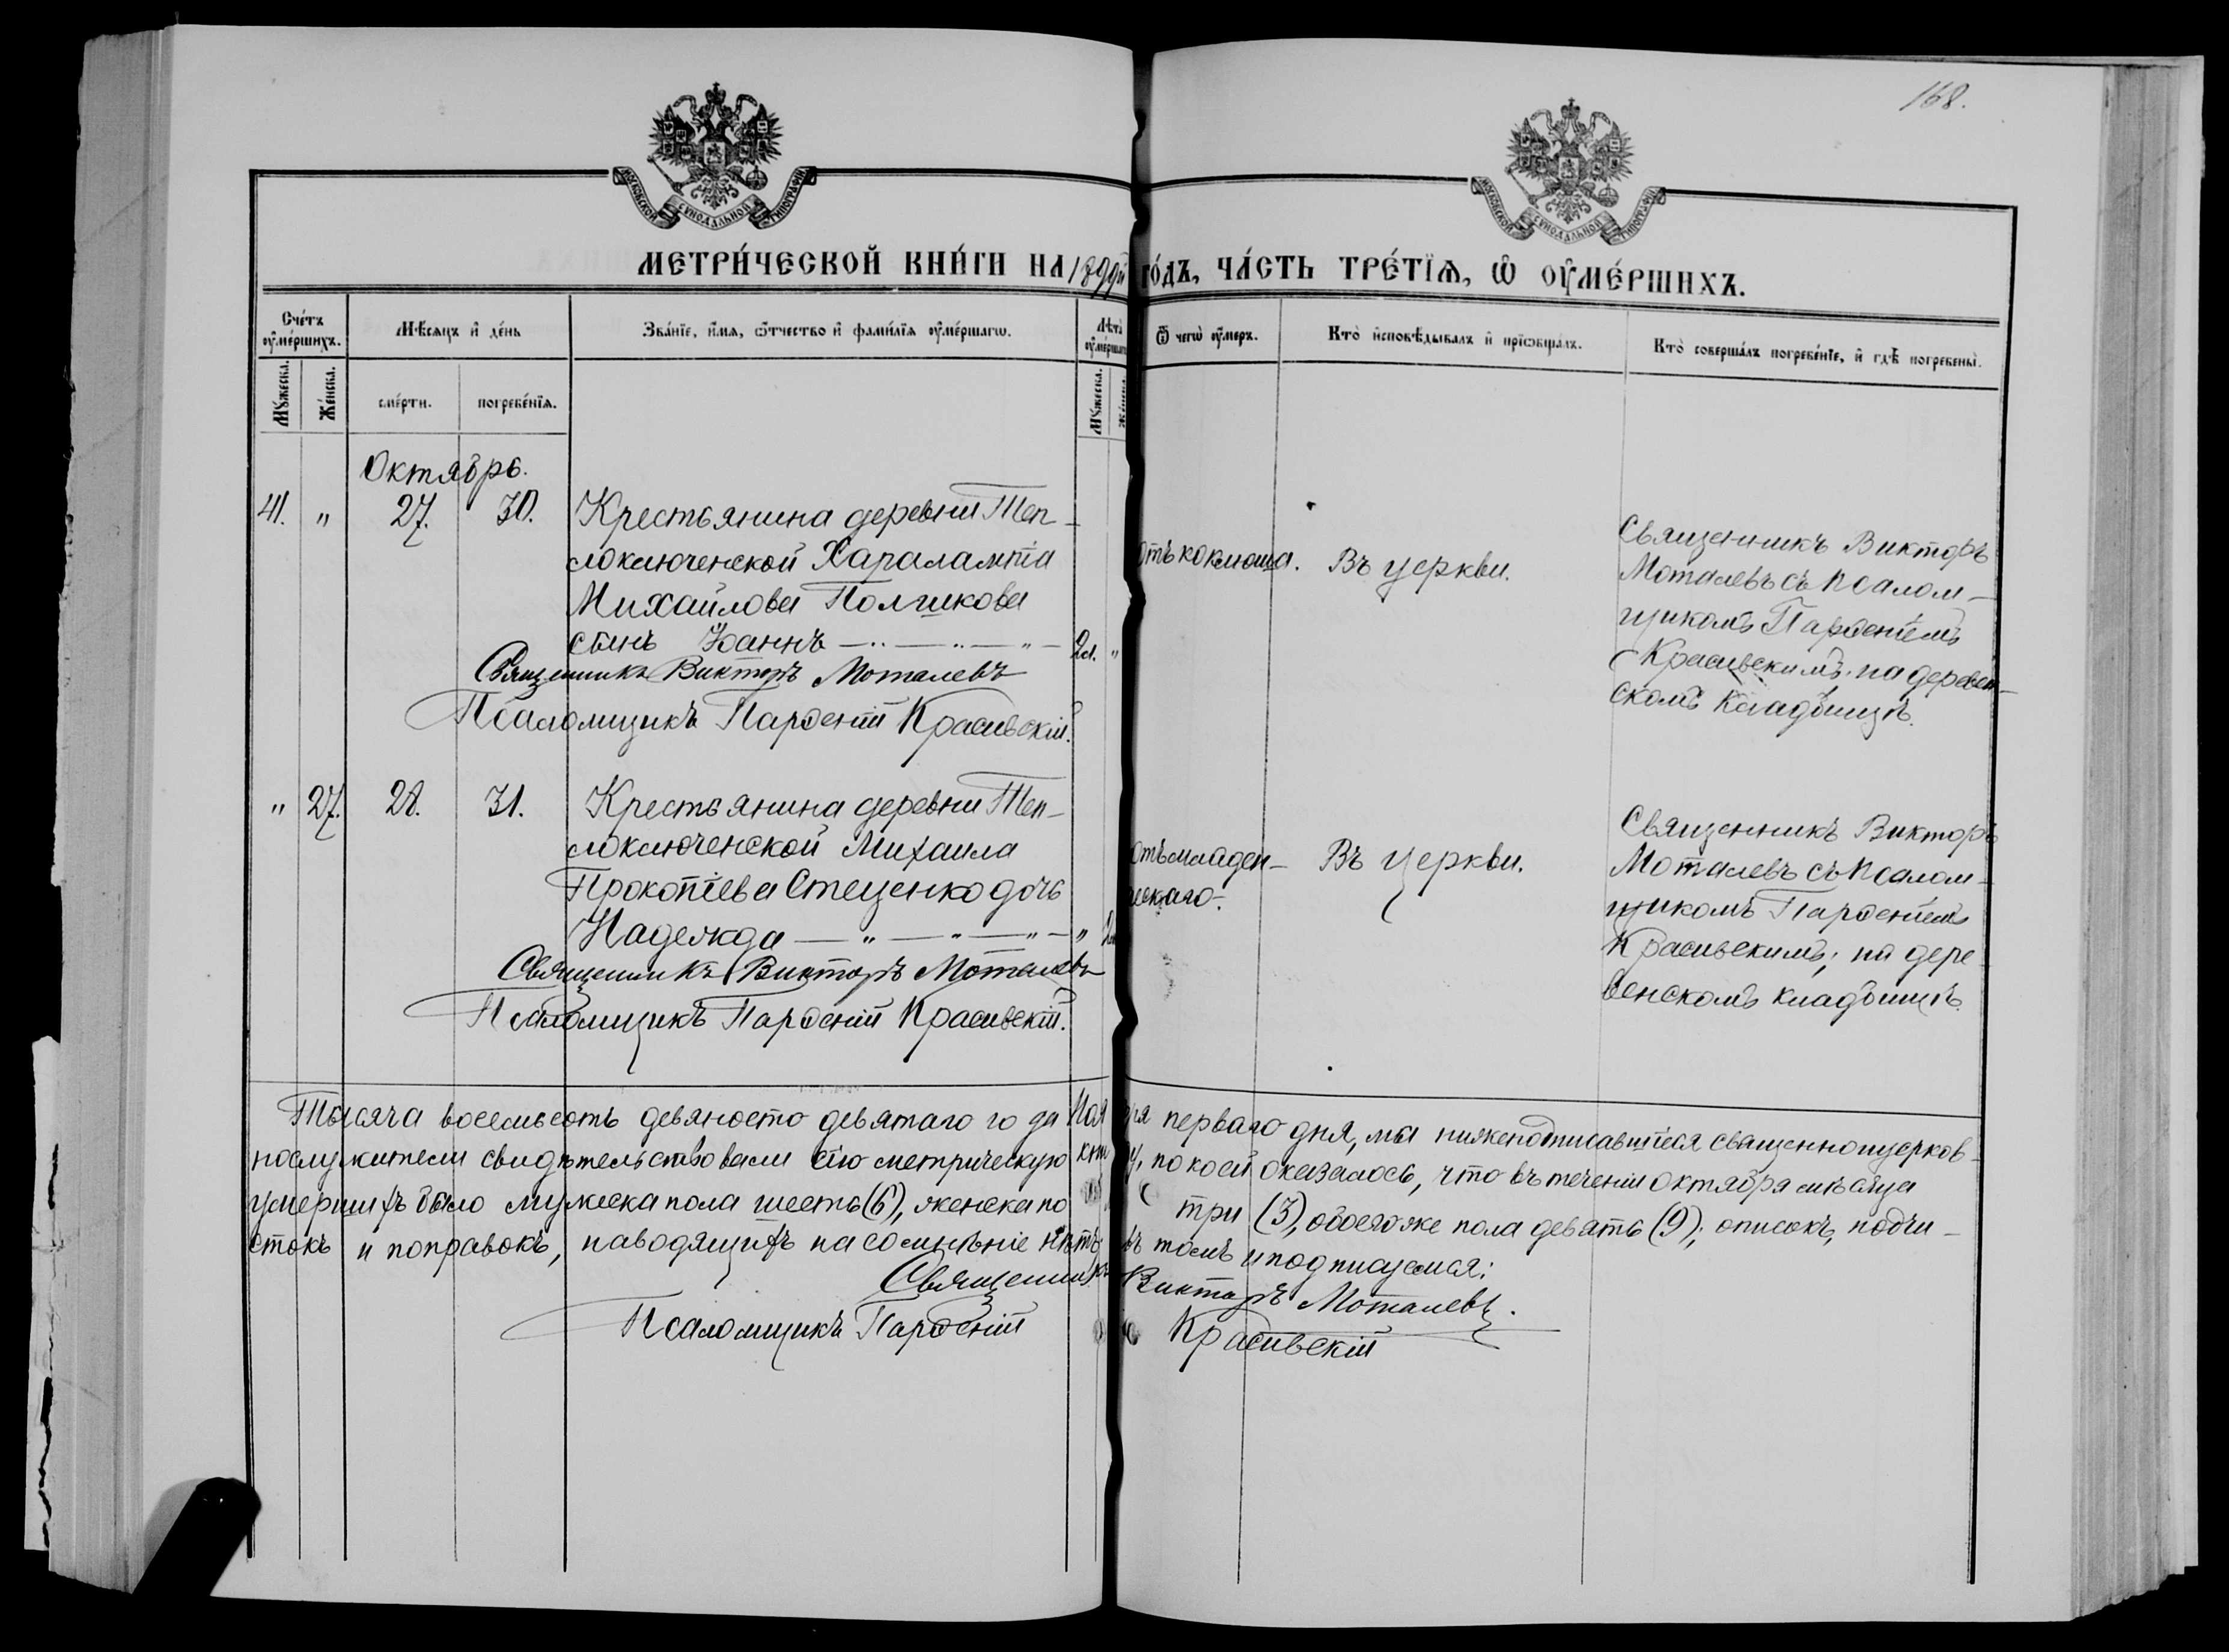 168.
МОСКОВСКОЙ СѴНОДАЛЬНОЙ ТИПОГРАФІИ
МОСКОВСКОЙ СѴНОДАЛЬНОЙ ТИПОГРАФІИ
МЕТРИ́ЧЕСКОЙ КНИ́ГИ НА 1899й ГО́ДЪ, ЧА́СТЬ ТРЕ́ТІѦ, Ѡ ОУ҆МЕ́РШИХЪ.
Сче́тъ ᲂу҆ме́ршихъ.
Мꙋ́жеска.
Же́нска.
Мѣ́сяцъ и҆ де́нь
сме́рти.
погребе́нїѧ.
Зва́нїе, и҆́мѧ, ѻ҆́тчество и҆ фами́лїѧ ᲂу҆ме́ршагѡ.
Лѣ́та ᲂу҆ме́ршагѡ
Мꙋ́жеска.
Же́нска.
Ѿ чегѡ̀ ᲂу҆́меръ.
Кто̀ и҆сповѣ́дывалъ и҆ прїѡбща́лъ.
Кто̀ соверша́лъ погребе́нїе, и҆ гдѣ̀ погребены̀.
Октябрь.
41. " 27. 30. Крестьянина деревни Теп-
лоключенской Харалампія
Михайлова Полчикова
сынъ Іоаннъ — " — " — " — 2л. "
Священникъ Викторъ Моталевъ
Псаломщикъ Парѳеній Красивскій.
отъ коклюша. Въ церкви.
Священникъ Викторъ
Моталевъ съ псалом-
щикомъ Парѳеніемъ
Красивскимъ; на деревен-
скомъ кладбищѣ.
" 27. 28. 31. Крестьянина деревни Теп-
лоключенской Михаила
Прокопіева Стеценко дочь
Надежда — " — " — " — "
Священникъ Викторъ Моталевъ
Псаломщикъ Парѳеній Красивскій.
отъ младен-
ческаго. Въ церкви.
Священникъ Викторъ
Моталевъ съ псалом-
щикомъ Парѳеніемъ
Красивскимъ; на дере-
венскомъ кладбищѣ.
Тысяча восемьсотъ девяносто девятаго года Ноября перваго дня, мы нижеподписавшіеся священноцерков-
нослужители свидѣтельствовали сію метрическую книгу, по коей оказалось, что въ теченіи октября мѣсяца
умершихъ было мужеска пола шесть (6), женска по три (3), обоего же пола девять (9); описокъ, подчи-
стокъ и поправокъ, наводящихъ на сомнѣніе нѣтъ въ томъ и подписуемся:
Священникъ Викторъ Моталевъ.
Псаломщикъ Парѳеній Красивскій